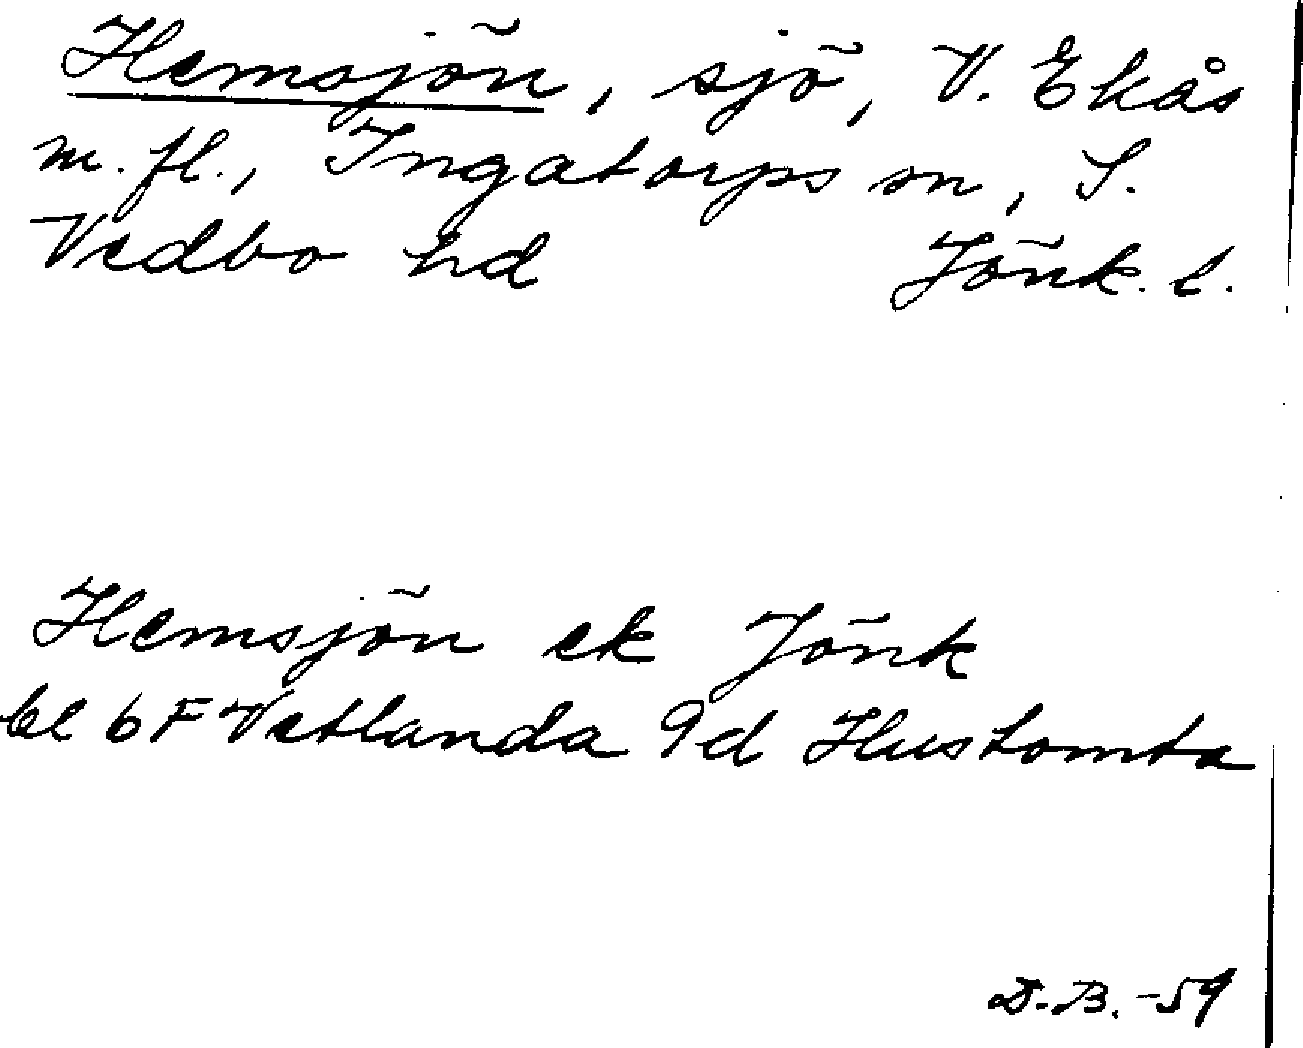 Hemsjön, sjö, V. Ekås
m. fl., Ingatorps sn, S.
Vedbo hd Jönk. l.
Hemsjön ek Jönk
bl 6F Vetlanda 9d Hustomta
D.B. -59